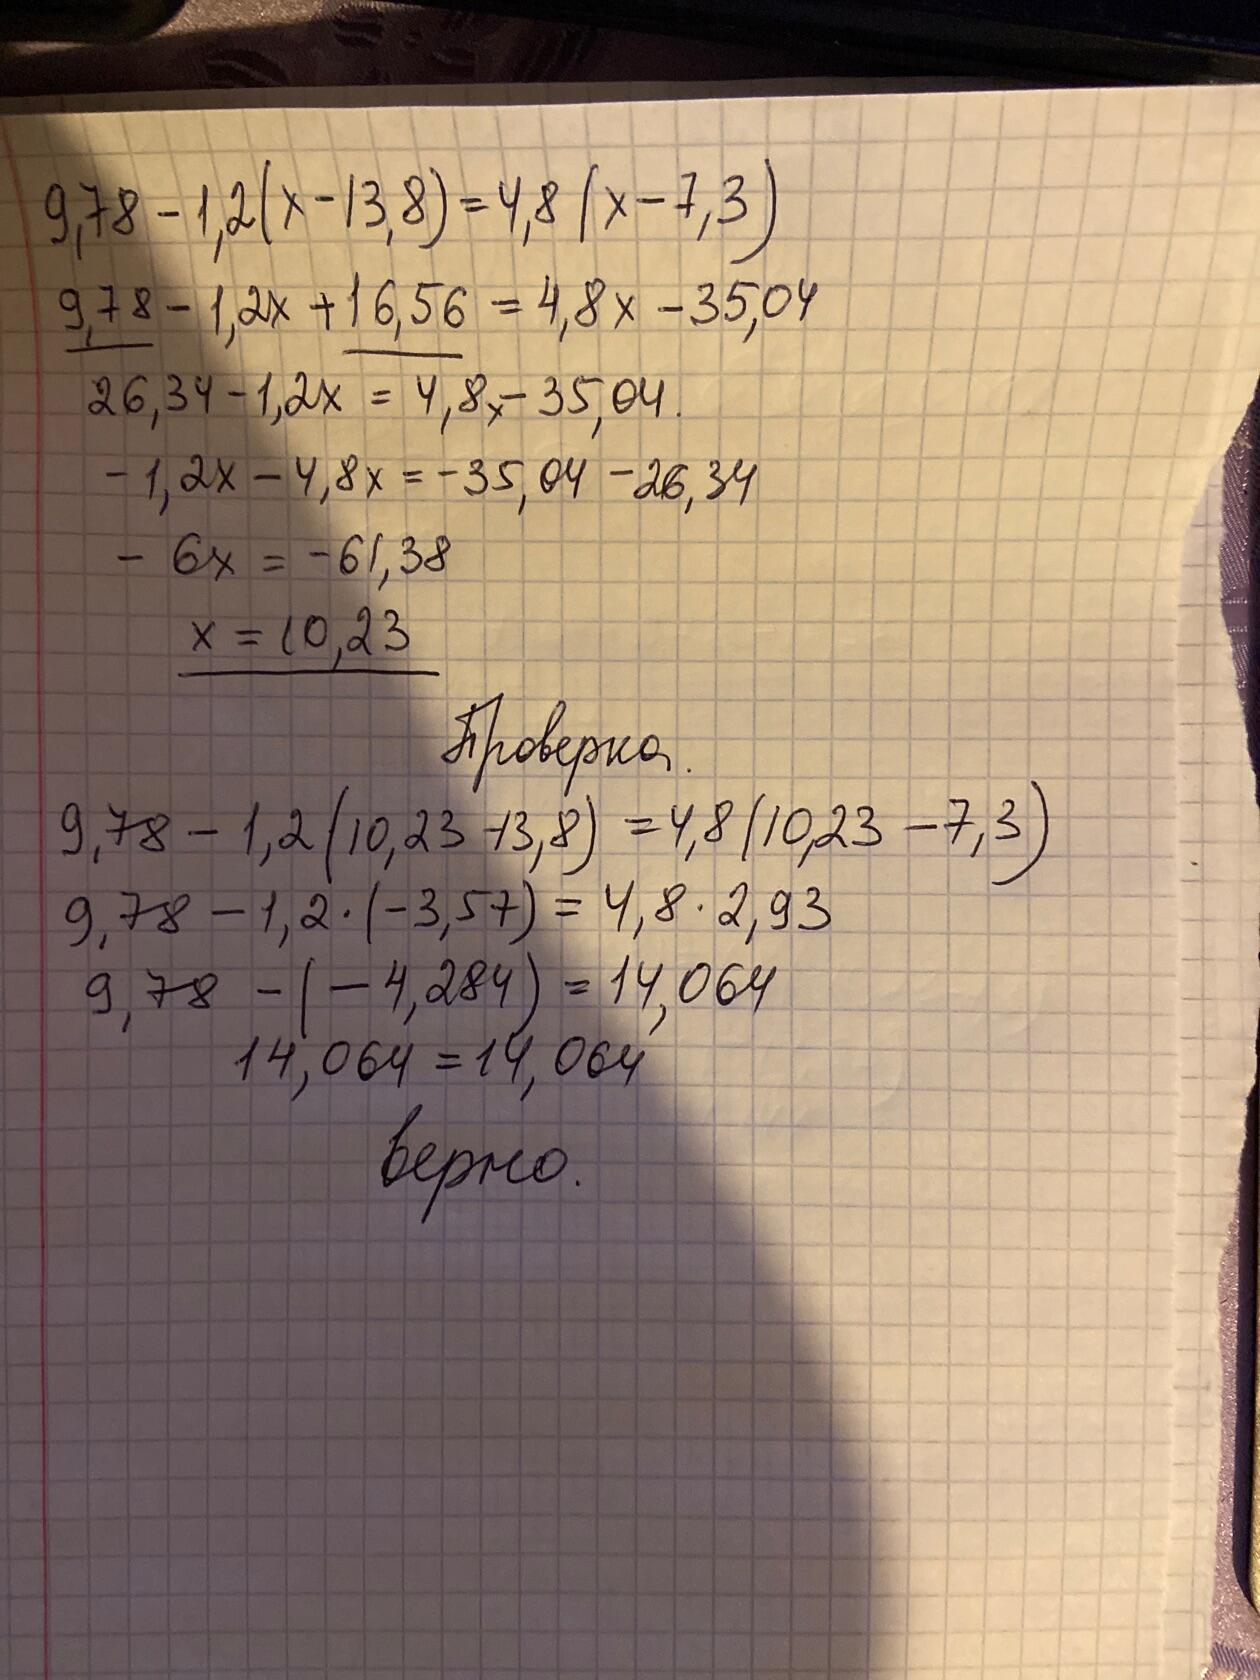 9,78 - 1,2(x - 13,8) = 4,8(x - 7,3)
9,78 - 1,2x + 16,56 = 4,8x - 35,04
26,34 - 1,2x = 4,8x - 35,04.
- 1,2x - 4,8x = -35,04 - 26,34
- 6x = -61,38
x = 10,23
Проверка.
9,78 - 1,2(10,23 - 13,8) = 4,8(10,23 - 7,3)
9,78 - 1,2·(-3,57) = 4,8·2,93
9,78 - (-4,284) = 14,064
14,064 = 14,064
верно.